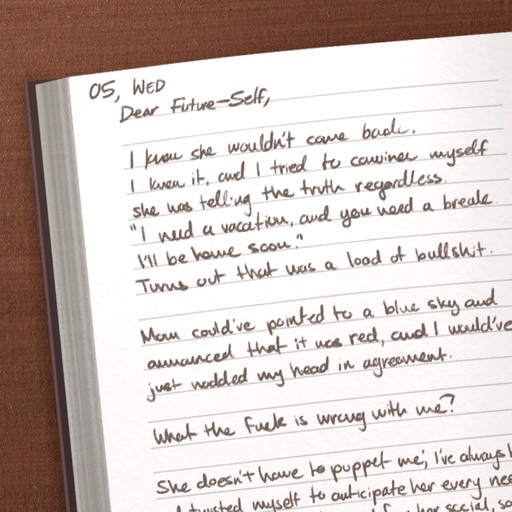 05, WED
Dear Future-Self,
I knew she wouldn't come back.
I knew it, and I tried to convince myself
she was telling the truth regardless.
"I need a vacation, and you need a break.
I'll be home soon."
Turns out that was a load of bullshit.
Mom could've pointed to a blue sky and
announced that it was red, and I would've
just nodded my head in agreement.
What the fuck is wrong with me?
She doesn't have to puppet me; I've always
twisted myself to anticipate her every
her social,